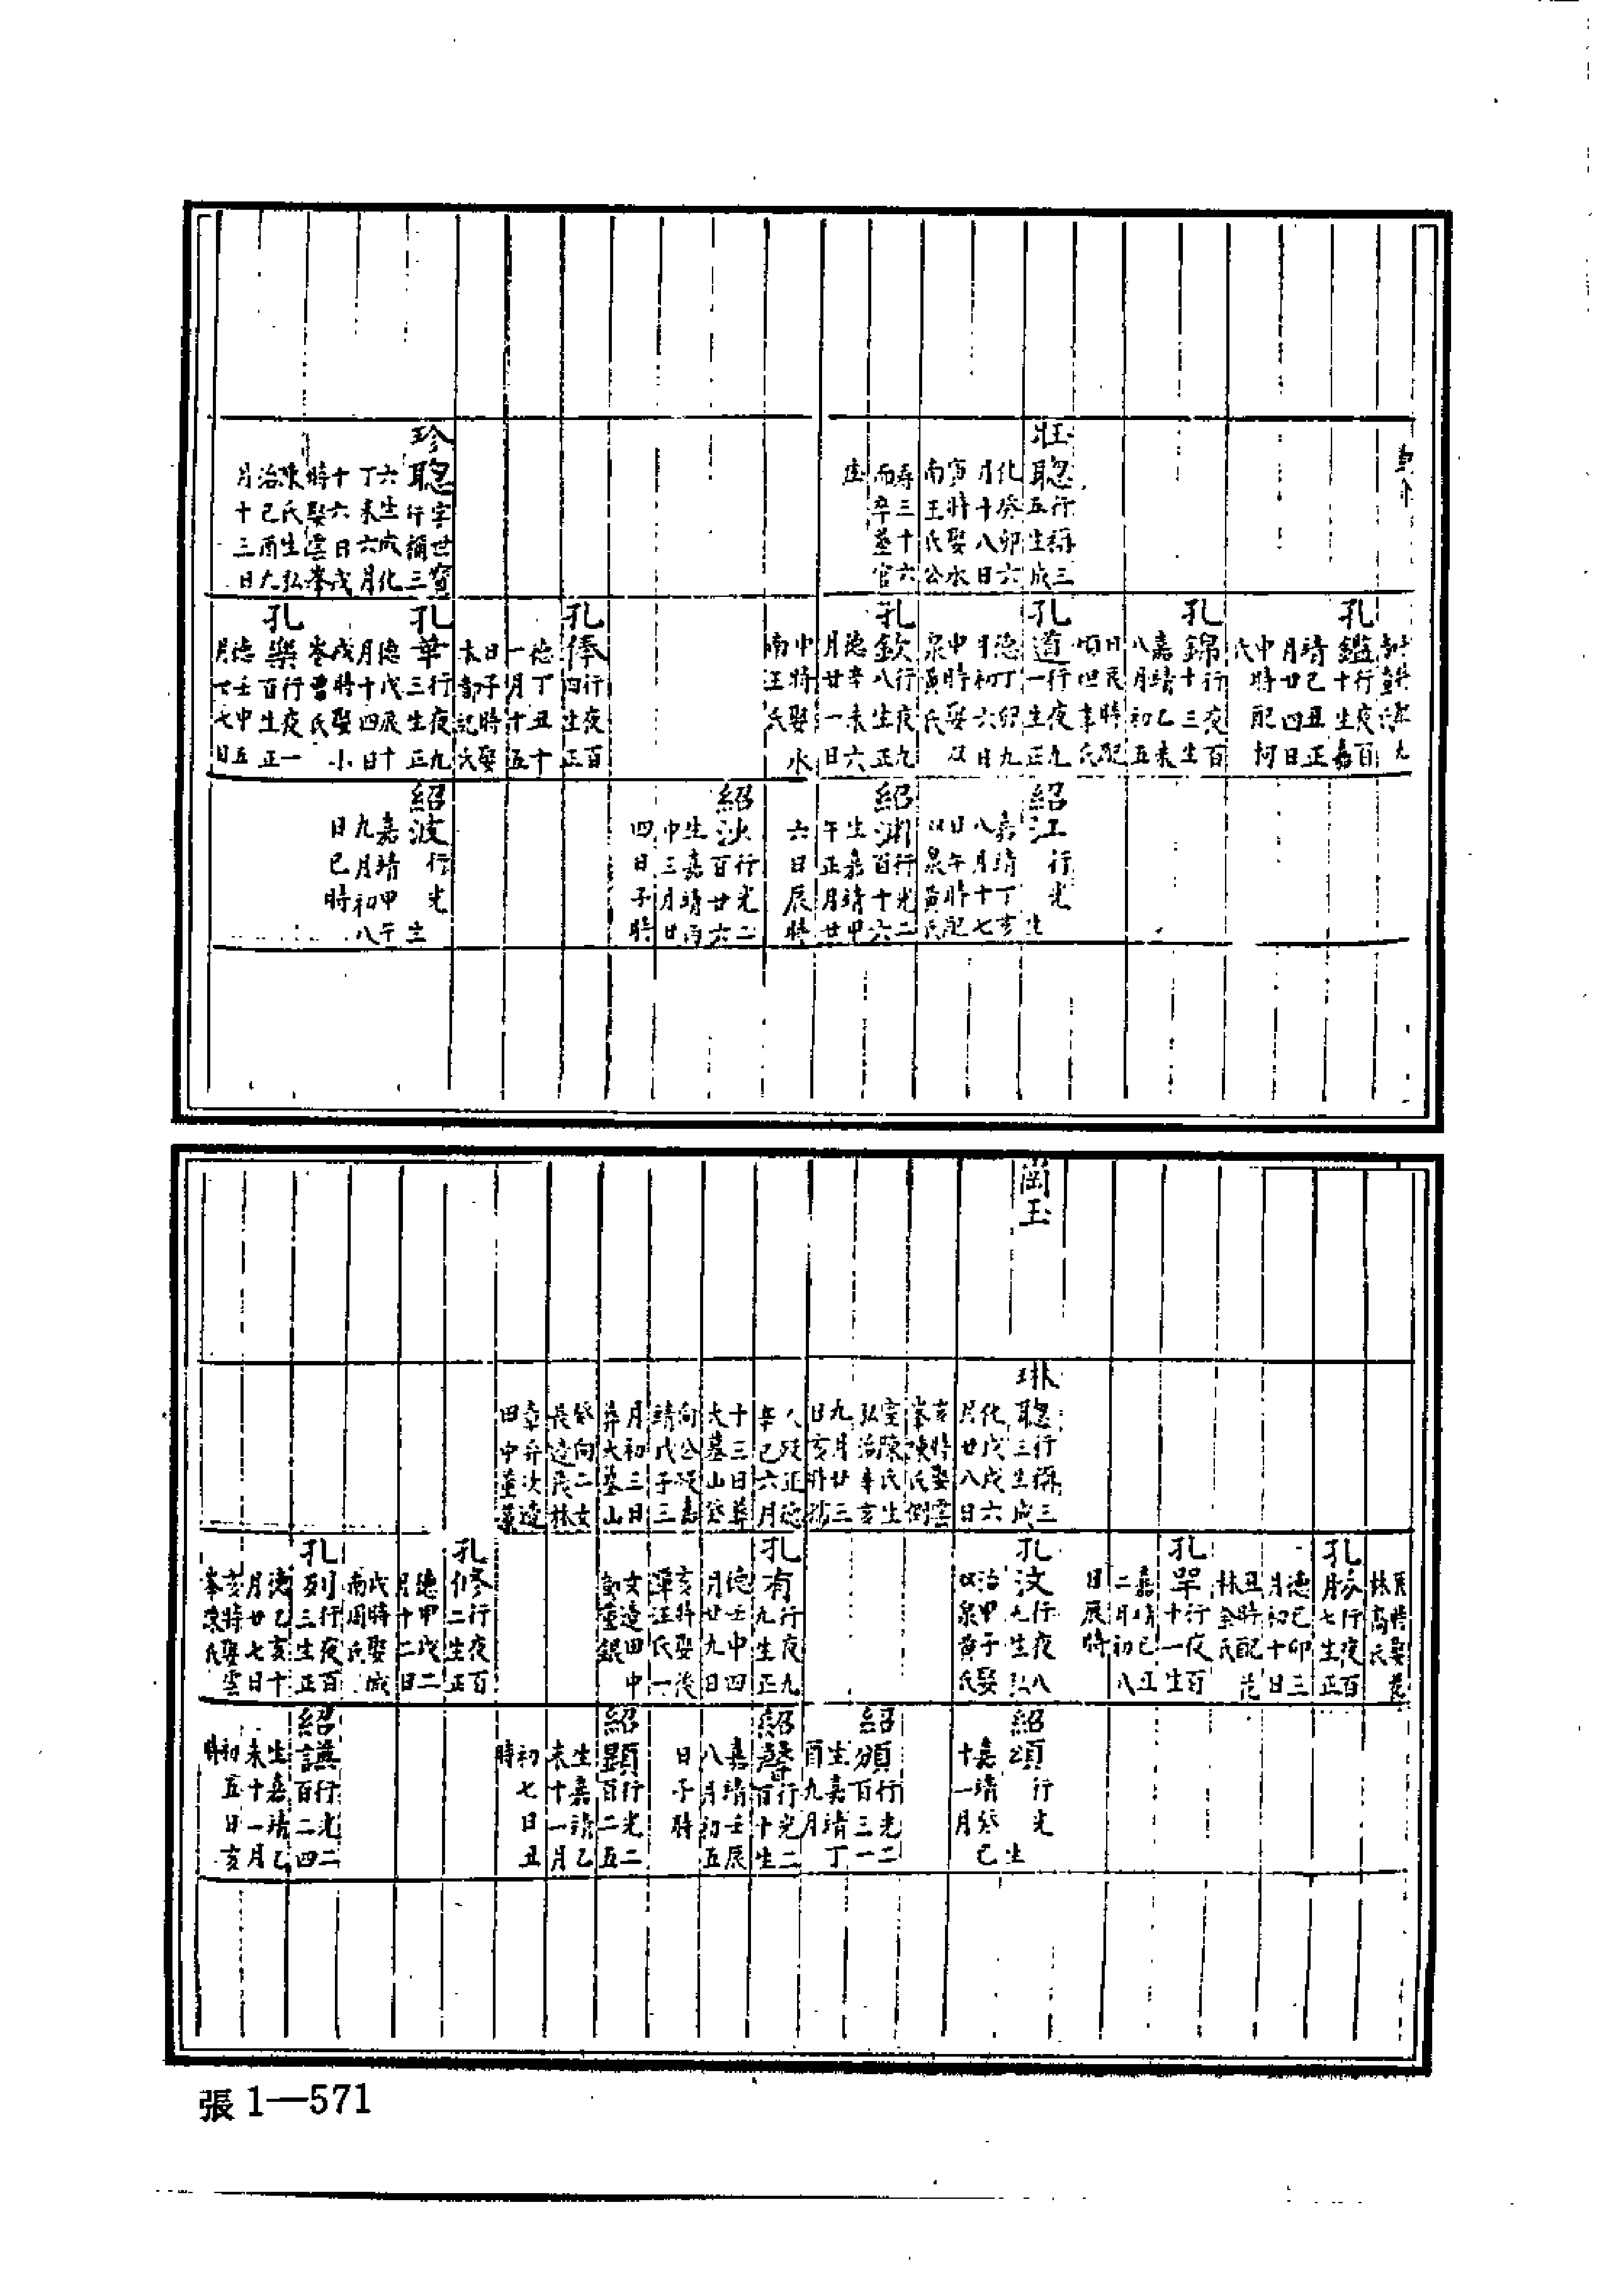 壯聰行稱三
五生成
化癸卯六
月十八日
寅時娶水
南王氏公
壽三十六
而卒墓官
珍聰字世寶
行稱三
六生成化
丁未六月
十六日戌
時娶雲峯
陳氏生弘
治己酉九
月十三日
孔鑑行夜百
十生嘉
靖己丑正
月廿四日
中時配柯
氏
孔錦行夜百
十三生
嘉靖乙未
八月初五
日辰時配
孔道行夜九
一生正
德丁卯九
月初六日
申時娶以
泉黃氏
孔欽行夜九
八生正
德辛未六
月廿一日
中時娶水
南汪氏
孔俸行夜百
四生正
德丁丑十
一月十五
日子時娶
孔華行夜九
三生正
德戊辰十
月十四日
戌時娶小
峯曹氏
孔樂行夜一
百生正
德壬申五
月廿七日
紹江行光
生
嘉靖丁亥
八月十七
日午時配
以泉黃氏
紹渊行光二
百十六
生嘉靖甲
午正月廿
六日辰時
紹沙行光二
百廿六
生嘉靖丙
申三月廿
四日子時
紹波行光
生
嘉靖甲午
九月初八
日巳時
崗玉
琳聰行稱三
三生成
化戊戌六
月廿八日
亥時娶雲
峯陳氏側
室陳氏生
弘治辛亥
九月廿三
日亥時
八歿正德
辛巳六月
十三日葬
大墓山癸
向公歿嘉
靖戊子三
月初三日
葬大墓山
癸向二女
長適茂林
章弁次適
田中董
辰時娶花
林高氏
孔勝行夜百
七生正
德己卯三
月初十日
丑時配花
林金氏
孔單行夜百
十一生
嘉靖己丑
二月初八
日辰時
孔汶行夜八
九生弘
治甲子娶
以泉黃氏
孔有行夜九
九生正
德壬申四
月廿九日
亥時娶後
潭汪氏一
女適田中
董銀
孔修行夜百
二生正
德甲戌二
月十二日
戌時娶城
南周氏
孔列行夜百
三生正
德乙亥十
月廿七日
亥時娶雲
峯陳氏
紹頊行光
生
嘉靖癸巳
十一月
紹頒行光二
百三一
生嘉靖丁
酉九月
紹聲行光二
百十生
嘉靖壬辰
八月初五
日子時
紹顯行光二
百二五
生嘉靖乙
未十一月
初七日丑
時
紹謨行光二
百二四
生嘉靖乙
未十一月
初五日亥
時
張1—571